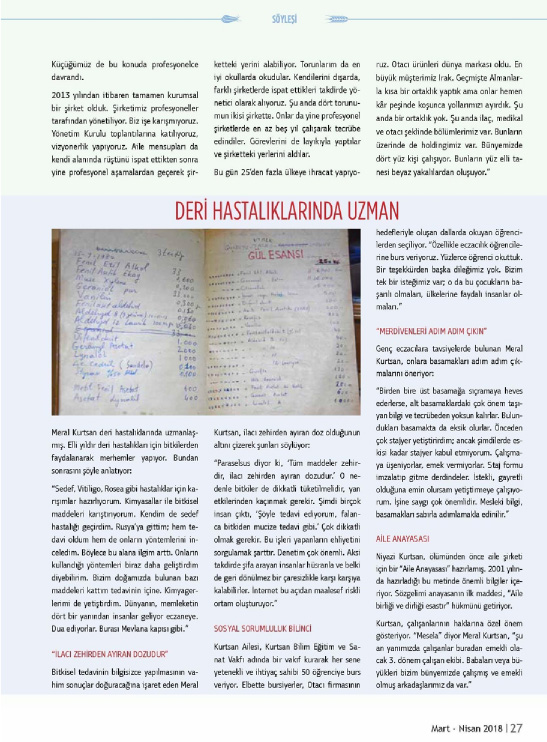 SÖYLEŞİ
Küçüğümüz de bu konuda profesyonelce
davrandı.
2013 yılından itibaren tamamen kurumsal
bir şirket olduk. Şirketimiz profesyoneller
tarafından yönetiliyor. Biz işe karışmıyoruz.
Yönetim Kurulu toplantılarına katılıyoruz,
vizyonerlik yapıyoruz. Aile mensupları da
kendi alanında rüştünü ispat ettikten sonra
yine profesyonel aşamalardan geçerek şir-
ketteki yerini alabiliyor. Torunlarım da en
iyi okullarda okudular. Kendilerini dışarda,
farklı şirketlerde ispat ettikleri takdirde yö-
netici olarak alıyoruz. Şu anda dört torunu-
mun ikisi şirkette. Onlar da yine profesyonel
şirketlerde en az beş yıl çalışarak tecrübe
edindiler. Görevlerini de layıkıyla yaptılar
ve şirketteki yerlerini aldılar.
Bu gün 25'den fazla ülkeye ihracat yapıyo-
ruz. Otacı ürünleri dünya markası oldu. En
büyük müşterimiz Irak. Geçmişte Almanlar-
la kısa bir ortaklık yaptık ama onlar hemen
kâr peşinde koşunca yollarımızı ayırdık. Şu
anda bir ortaklık yok. Şu anda ilaç, medikal
ve otacı şeklinde bölümlerimiz var. Bunların
üzerinde de holdingimiz var. Bünyemizde
dört yüz kişi çalışıyor. Bunların yüz elli ta-
nesi beyaz yakalılardan oluşuyor."
DERİ HASTALIKLARINDA UZMAN
GÜL ESANSI
Meral Kurtsan deri hastalıklarında uzmanlaş-
mış. Elli yıldır deri hastalıkları için bitkilerden
faydalanarak merhemler yapıyor. Bundan
sonrasını şöyle anlatıyor:
"Sedef, Vitiligo, Rosea gibi hastalıklar için ka-
rışımlar hazırlıyorum. Kimyasallar ile bitkisel
maddeleri karıştırıyorum. Kendim de sedef
hastalığı geçirdim. Rusya'ya gittim; hem te-
davi oldum hem de onların yöntemlerini in-
celedim. Böylece bu alana ilgim arttı. Onların
kullandığı yöntemleri biraz daha geliştirdim
diyebilirim. Bizim doğamızda bulunan bazı
maddeleri kattım tedavinin içine. Kimyager-
lerimi de yetiştirdim. Dünyanın, memleketin
dört bir yanından insanlar geliyor eczaneye.
Dua ediyorlar. Burası Mevlana kapısı gibi."
"İLACI ZEHİRDEN AYIRAN DOZUDUR"
Bitkisel tedavinin bilgisizce yapılmasının va-
him sonuçlar doğuracağına işaret eden Meral
Kurtsan, ilacı zehirden ayıran doz olduğunun
altını çizerek şunları söylüyor:
"Paraselsus diyor ki, 'Tüm maddeler zehir-
dir, ilacı zehirden ayıran dozudur.' O ne-
denle bitkiler de dikkatli tüketilmelidir, yan
etkilerinden kaçınmak gerekir. Şimdi birçok
insan çıktı, 'Şöyle tedavi ediyorum, falan-
ca bitkiden mucize tedavi gibi.' Çok dikkatli
olmak gerekir. Bu işleri yapanların ehliyetini
sorgulamak şarttır. Denetim çok önemli. Aksi
takdirde şifa arayan insanlar hüsranla ve belki
de geri dönülmez bir çaresizlikle karşı karşıya
kalabilirler. İnternet bu açıdan maalesef riskli
ortam oluşturuyor."
SOSYAL SORUMLULUK BİLİNCİ
Kurtsan Ailesi, Kurtsan Bilim Eğitim ve Sa-
nat Vakfı adında bir vakıf kurarak her sene
yetenekli ve ihtiyaç sahibi 50 öğrenciye burs
veriyor. Elbette bursiyerler, Otacı firmasının
hedefleriyle oluşan dallarda okuyan öğrenci-
lerden seçiliyor. "Özellikle eczacılık öğrencile-
rine burs veriyoruz. Yüzlerce öğrenci okuttuk.
Bir teşekkürden başka dileğimiz yok. Bizim
tek bir isteğimiz var; o da bu çocukların ba-
şarılı olmaları, ülkelerine faydalı insanlar ol-
maları."
"MERDİVENLERİ ADIM ADIM ÇIKIN"
Genç eczacılara tavsiyelerde bulunan Meral
Kurtsan, onlara basamakları adım adım çık-
malarını öneriyor:
"Birden bire üst basamağa sıçramaya heves
ederlerse, alt basamaklardaki çok önem taşı-
yan bilgi ve tecrübeden yoksun kalırlar. Bulun-
dukları basamakta da eksik olurlar. Önceden
çok stajyer yetiştirdim; ancak şimdilerde es-
kisi kadar stajyer kabul etmiyorum. Çalışma-
ya üşeniyorlar, emek vermiyorlar. Staj formu
imzalatıp gitme derdindeler. İstekli, gayretli
olduğuna emin olursam yetiştirmeye çalışıyo-
rum. İşine saygı çok önemlidir. Mesleki bilgi,
basamakları sabırla adımlamakla edinilir."
AİLE ANAYASASI
Niyazi Kurtsan, ölümünden önce aile şirketi
için bir "Aile Anayasası" hazırlamış. 2001 yılın-
da hazırladığı bu metinde önemli bilgiler içe-
riyor. Sözgelimi anayasanın ilk maddesi, "Aile
birliği ve dirliği esastır" hükmünü getiriyor.
Kurtsan, çalışanlarının haklarına özel önem
gösteriyor. "Mesela" diyor Meral Kurtsan, "şu
an yanımızda çalışanlar buradan emekli ola-
cak 3. dönem çalışan ekibi. Babaları veya bü-
yükleri bizim bünyemizde çalışmış ve emekli
olmuş arkadaşlarımız da var."
Mart - Nisan 2018 | 27